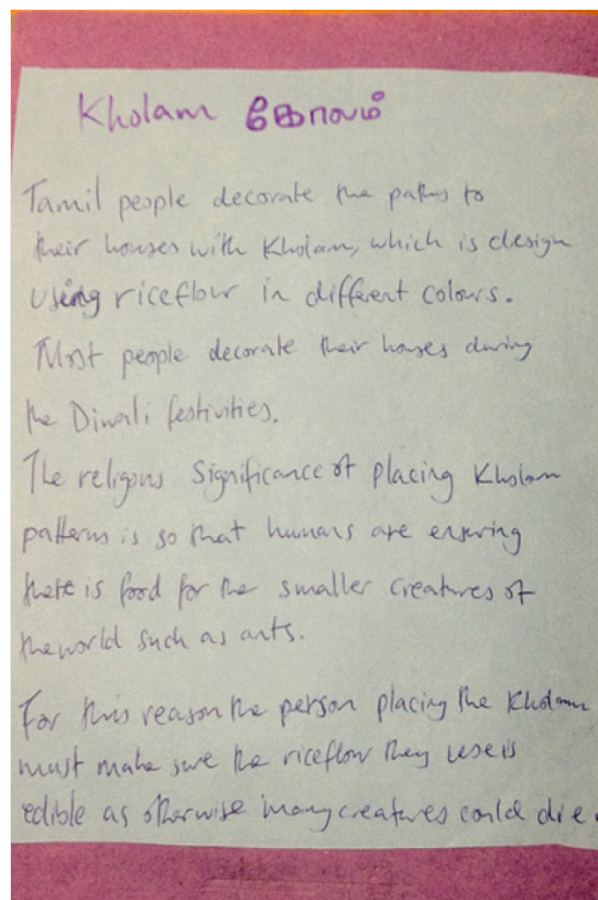 Kholam கோலம்
Tamil people decorate the paths to
their houses with Kholam, which is design
using riceflour in different colours.
Most people decorate their houses during
the Diwali festivities.
The religous significance of placing Kholam
patterns is so that humans are ensuring
there is food for the smaller creatures of
the world such as ants.
For this reason the person placing the Kholam
must make sure the riceflow they use is
edible as otherwise many creatures could die.